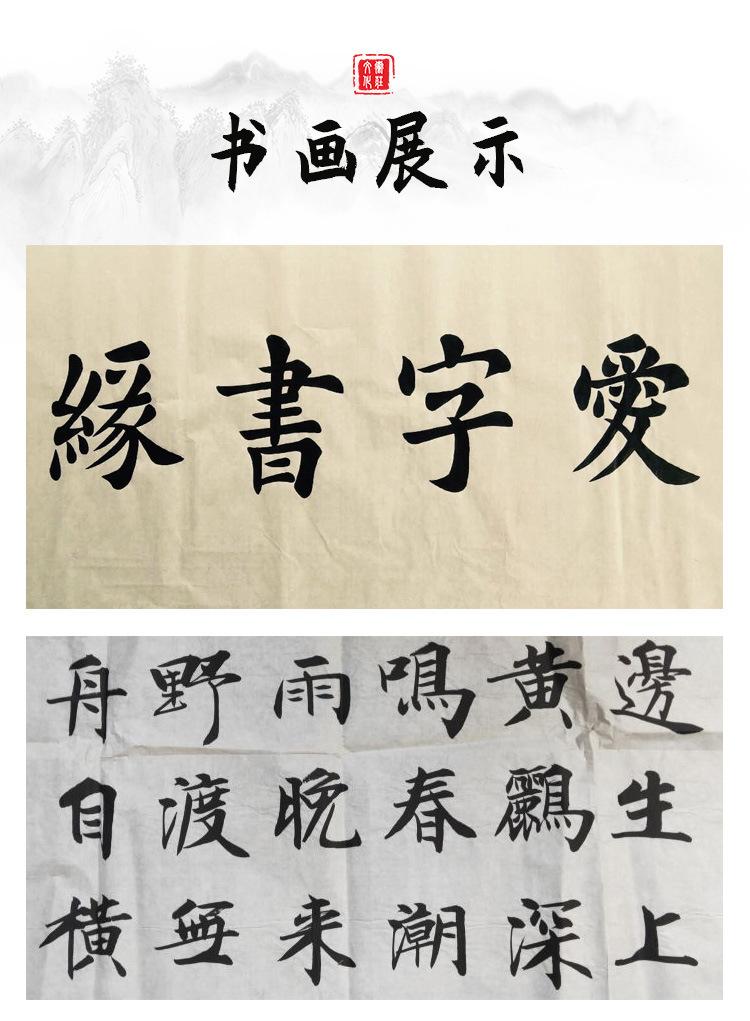 文化
书画展示
愛字書緣
邊生上
黄鸝深
鳴春潮
雨晚来
野渡無
舟自横